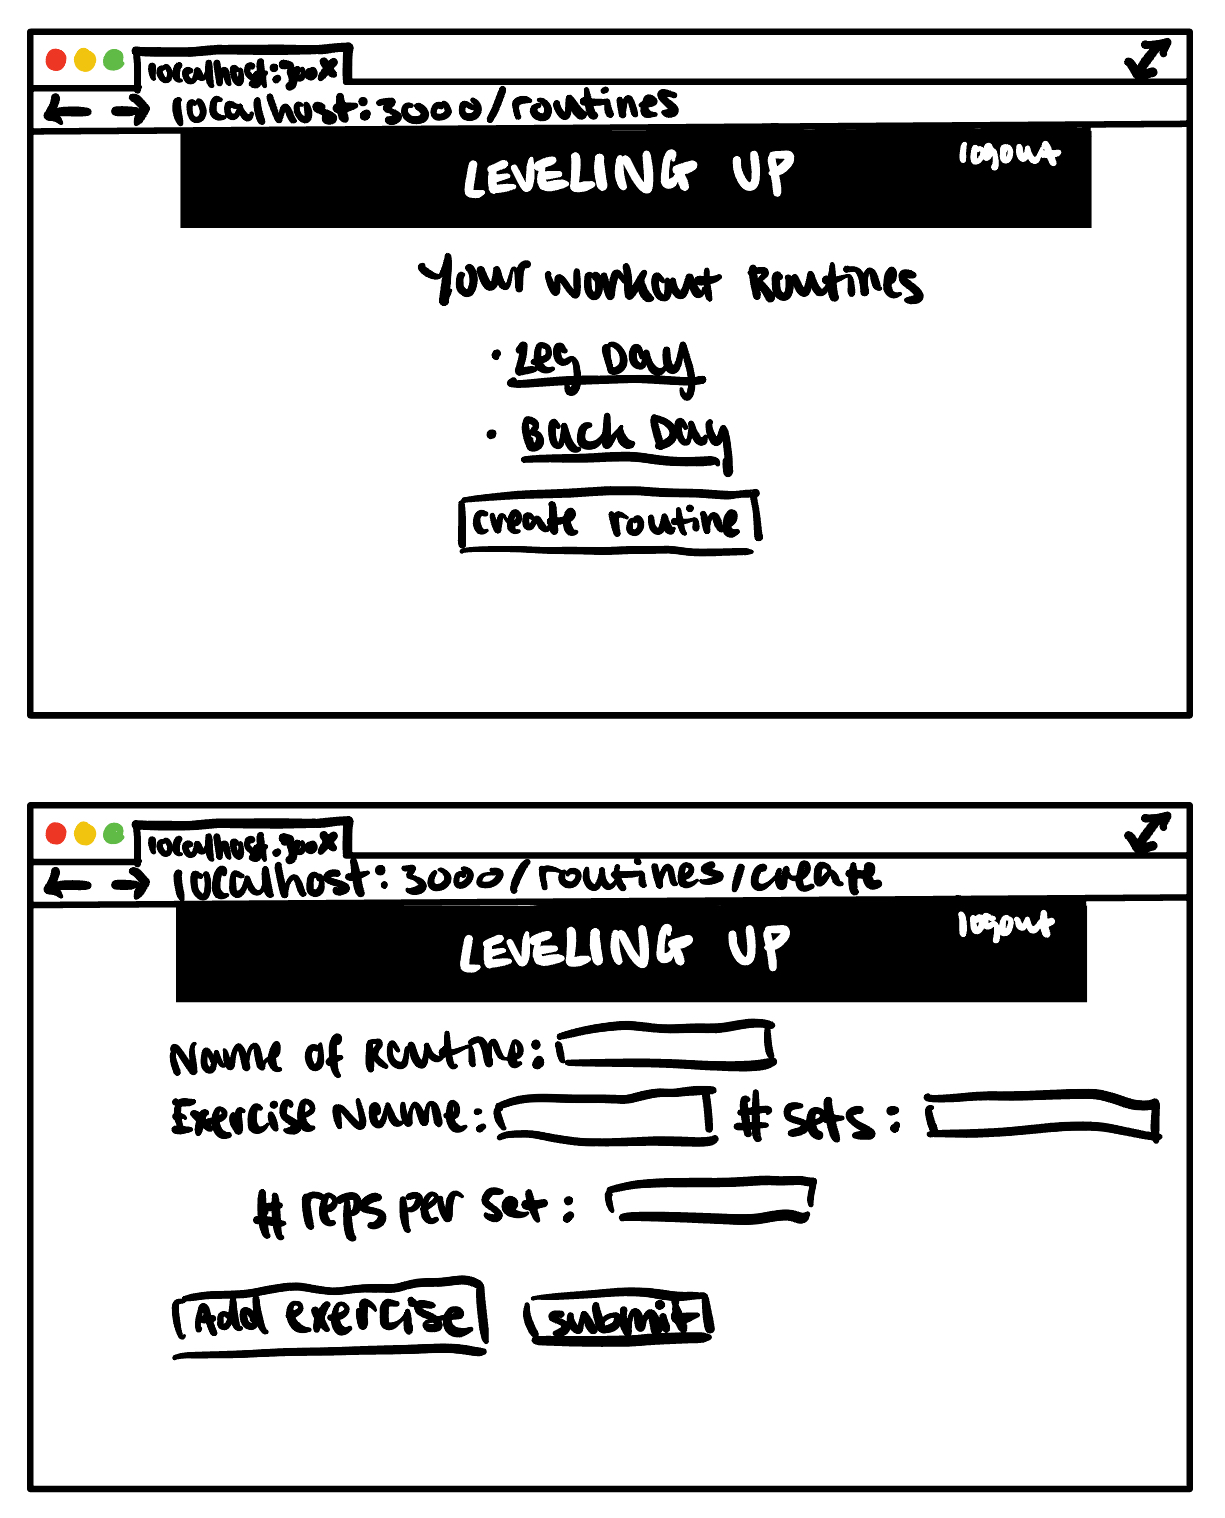 localhost:300X
localhost:3000/routines
LEVELING UP
logout
Your Workout Routines
· Leg Day
· Back Day
create routine
localhost:300X
localhost:3000/routines/create
LEVELING UP
logout
Name of Routine:
Exercise Name: # sets:
# reps per set:
Add exercise submit